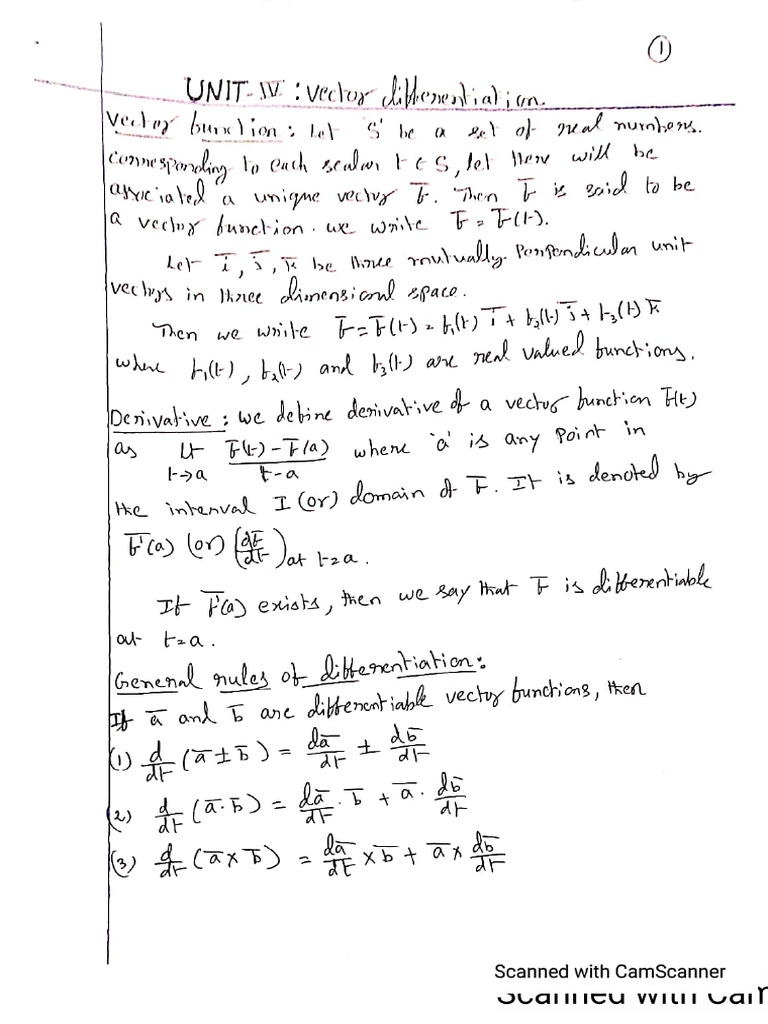 ①
UNIT-IV : Vector differentiation.
Vector function : Let 'S' be a set of real numbers.
Corresponding to each scalar t ∈ S, let there will be
associated a unique vector f̄. Then f̄ is said to be
a vector function. we write f̄ = f̄(t).
Let ī, j̄, k̄ be three mutually perpendicular unit
vectors in three dimensional space.
Then we write f̄ = f̄(t) = f₁(t) ī + f₂(t) j̄ + f₃(t) k̄
where f₁(t), f₂(t) and f₃(t) are real valued functions.
Derivative : we define derivative of a vector function f̄(t)
as Lt t→a (f̄(t) - f̄(a))/(t - a) where 'a' is any point in
the interval I (or) domain of f̄. It is denoted by
f̄'(a) (or) (df̄/dt) at t=a.
If f̄'(a) exists, then we say that f̄ is differentiable
at t=a.
General rules of differentiation :
If ā and b̄ are differentiable vector functions, then
(1) d/dt (ā ± b̄) = dā/dt ± db̄/dt
(2) d/dt (ā · b̄) = dā/dt · b̄ + ā · db̄/dt
(3) d/dt (ā × b̄) = dā/dt × b̄ + ā × db̄/dt
Scanned with CamScanner
Scanned with Cam